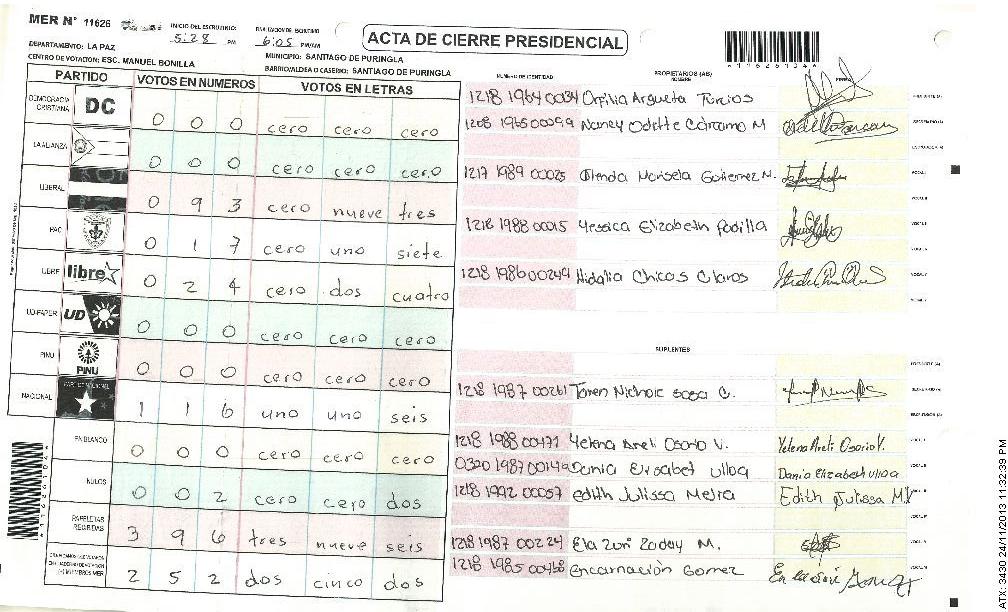 MER N° 11626
INICIO DEL ESCRUTINIO:
5:28 PM
6:05 PM/AM
ACTA DE CIERRE PRESIDENCIAL
DEPARTAMENTO: LA PAZ
MUNICIPIO: SANTIAGO DE PURINGLA
CENTRO DE VOTACION: ESC. MANUEL BONILLA
BARRIO/ALDEA O CASERIO: SANTIAGO DE PURINGLA
PARTIDO VOTOS EN NUMEROS VOTOS EN LETRAS
DEMOCRACIA CRISTIANA DC 0 0 0 cero cero cero
LA ALIANZA 0 0 0 cero cero cero
LIBERAL 0 9 3 cero nueve tres
PAC 0 1 7 cero uno siete
LIBRE libre 0 2 4 cero dos cuatro
UD-FAPER UD 0 0 0 cero cero cero
PINU PINU 0 0 0 cero cero cero
NACIONAL 1 1 6 uno uno seis
EN BLANCO 0 0 0 cero cero cero
NULOS 0 0 2 cero cero dos
PAPELETAS RECIBIDAS 3 9 6 tres nueve seis
2 5 2 dos cinco dos
NUMERO DE IDENTIDAD PROPIETARIOS (AS) NOMBRE FIRMA
1218 1964 00034 Argueta Turcios
1208 1965 00099 Nancy Odette Carcamo M
1217 1989 00025 Glenda Marisela Gutierrez M.
1218 1988 00015 Yessica Elizabeth Padilla
1218 1986 00249 Hidalia Chicas Claros
SUPLENTES
1218 1987 00261 Sosa C.
1218 1988 00471 Yelena Areli Osorio V. Yelena Areli Osorio V.
0320 1987 00149 Dania Elisabet Ulloa Dania Elizabeth Ulloa
1218 1992 00057 edith Julissa Mejia Edith Julissa M
1218 1987 00224 M.
1218 1985 00458 Encarnación Gomez
ATX: 3430 24/11/2013 11:32:39 PM